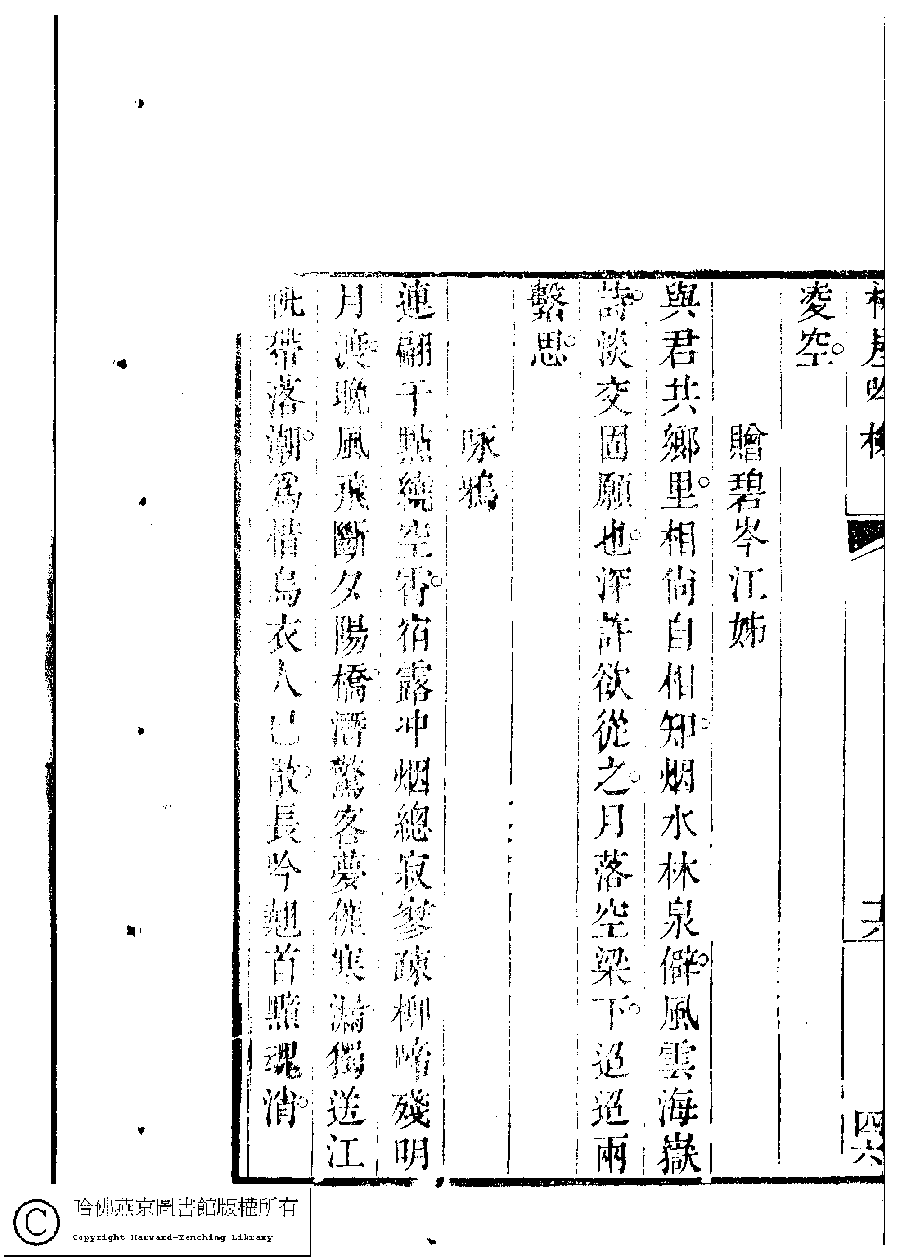 吟
十六
四六
夌空。
贈碧岑江姊
與君共鄉里。相尚自相知。烟水林泉僻。風雲海嶽
詩。淡交固願也。深許欲從之。月落空梁下。迢迢兩
繫思。
咏鴉
連翩千點繞空霄。宿露冲烟總寂寥疎柳啼殘明
月渡。晚風飛斷夕陽橋。潛驚客夢催寒漏。獨送江
帆帶落潮。爲惜烏衣人已散。長吟翹首黯魂消。
哈佛燕京圖書館版權所有
Copyright Harvard-Yenching Library